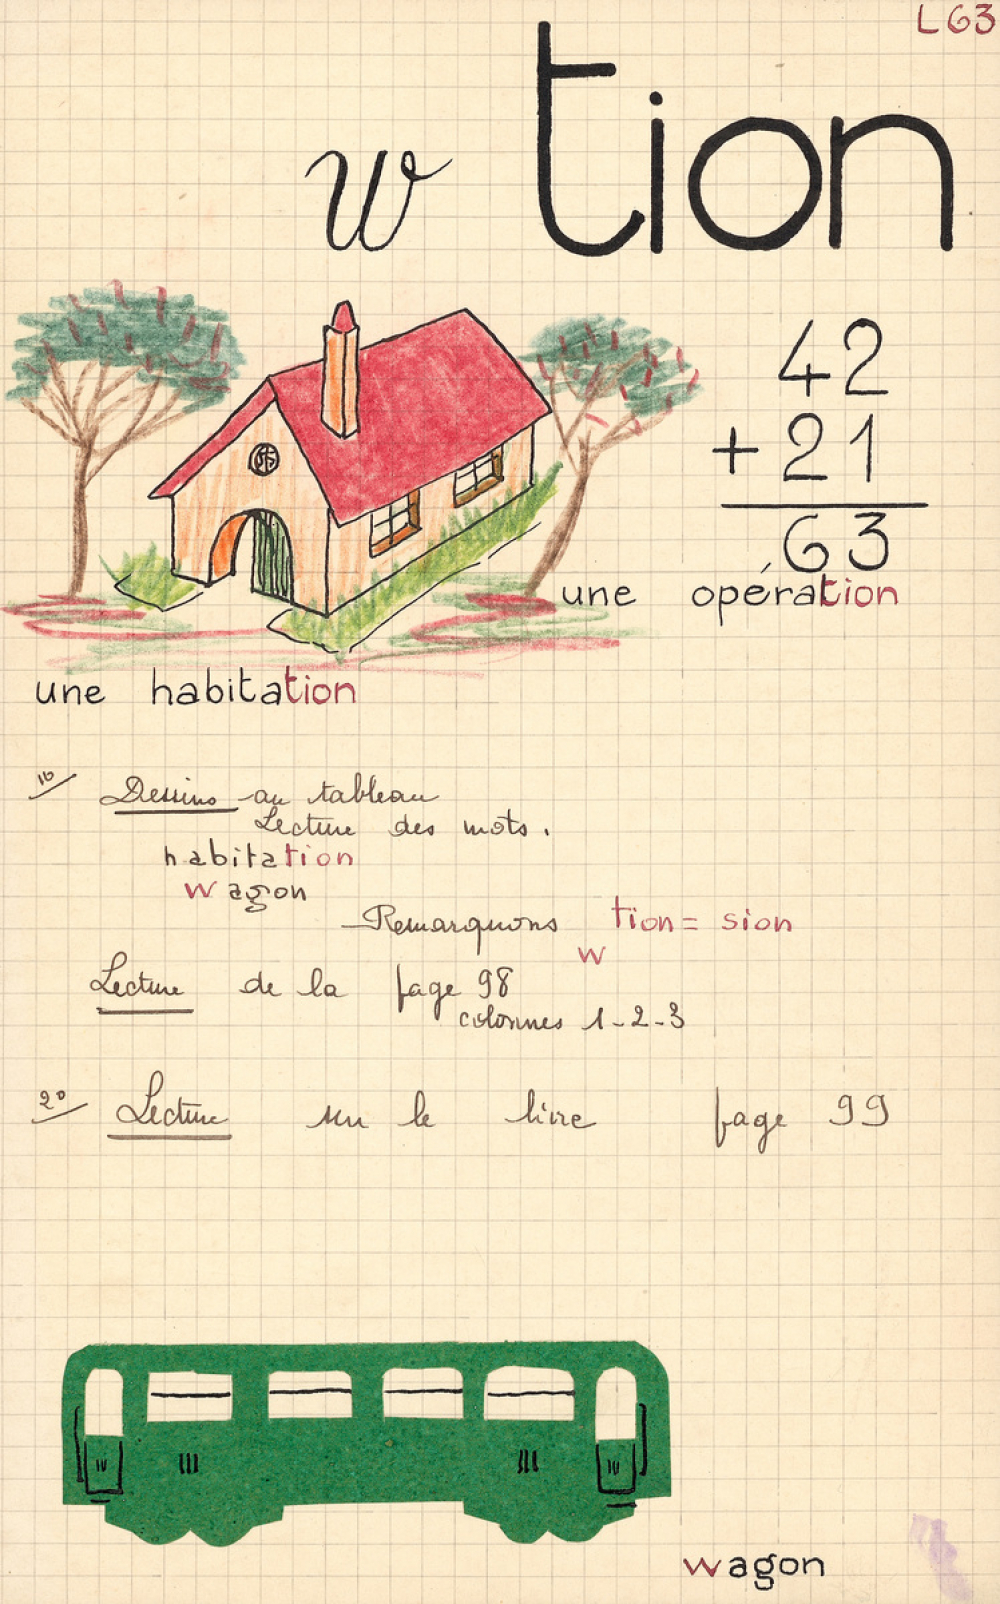 L 63
w tion
42
+ 21
63
une opération
une habitation
1° Dessins au tableau
Lecture des mots.
habitation
wagon
Remarquons tion = sion
w
Lecture de la page 98
colonnes 1-2-3
2° Lecture sur le livre page 99
IV III III IV
wagon